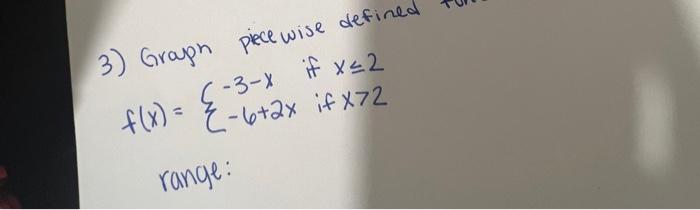 3) Graph piecewise defined
f(x) = { -3-x if x≤2
-6+2x if x>2
range: